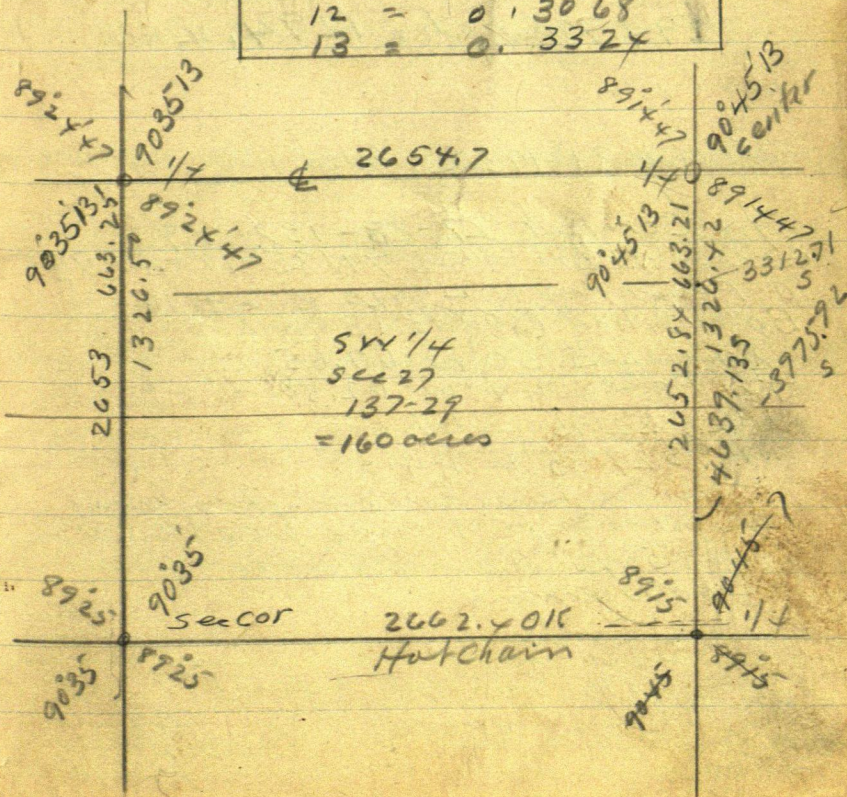 12 = 0.3068
13 = 0.3324
89°24'47
90°35'13
1/4
℄ 2654.7
89°14'47
90°45'13
center
1/4
90°35'13
663.25
89°24'47
1326.50
2653
90°45'13
663.21
2652.84
1326.42
89°14'47
3312.71
S
-3975.92
S
4639.135
SW 1/4
sec 27
137-29
=160 acres
89°25
90°35
sec cor
2662.4 OK
Hot Chain
90°35
89°25
89°15
90°45
?
1/4
90°45
89°15